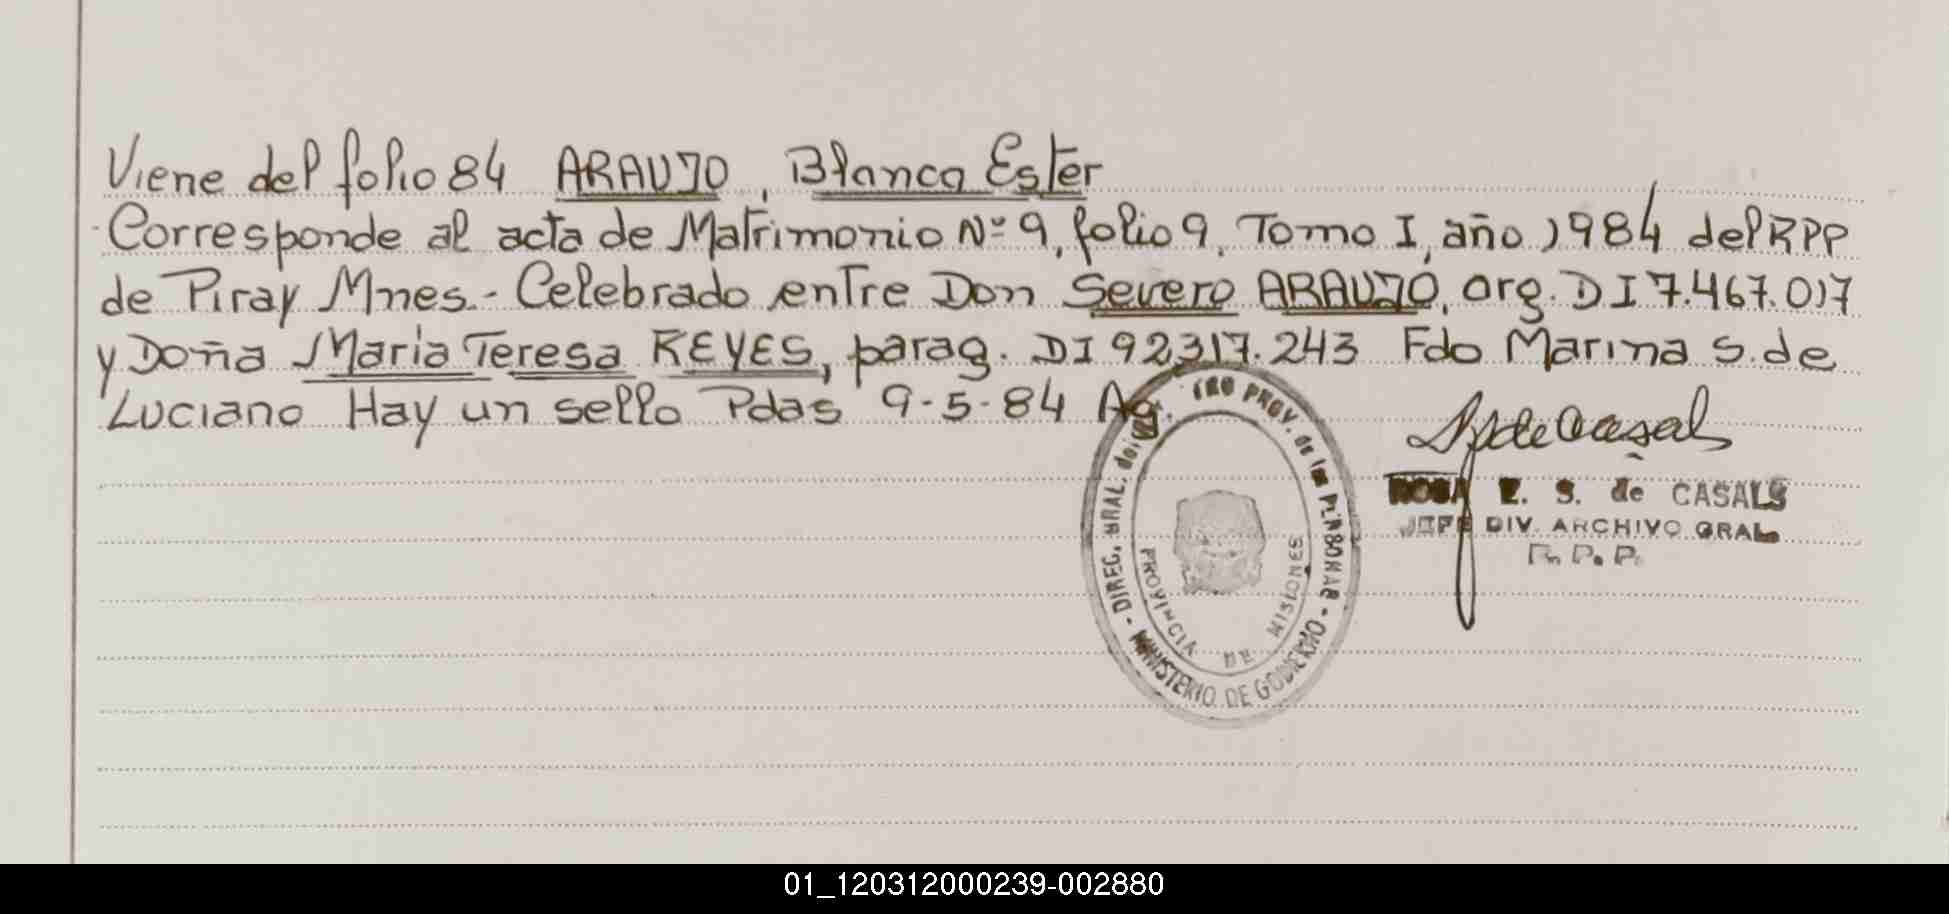 Viene del folio 84 ARAUJO, Blanca Ester
Corresponde al acta de Matrimonio Nº 9, folio 9, Tomo I, año 1984 del RPP
de Piray Mnes.- Celebrado entre Don Severo ARAUJO, arg. DI 7.467.017
y Doña Maria Teresa REYES, parag. DI 92317.243 Fdo Marina S. de
Luciano Hay un sello Pdas 9-5-84 Ag.
ROSA E. S. de CASALS
JEFE DIV. ARCHIVO GRAL
R. P. P.
DIREC. GRAL. del PROV. de las PERSONAS - MINISTERIO DE GOBIERNO -
PROVINCIA DE MISIONES
01_120312000239-002880